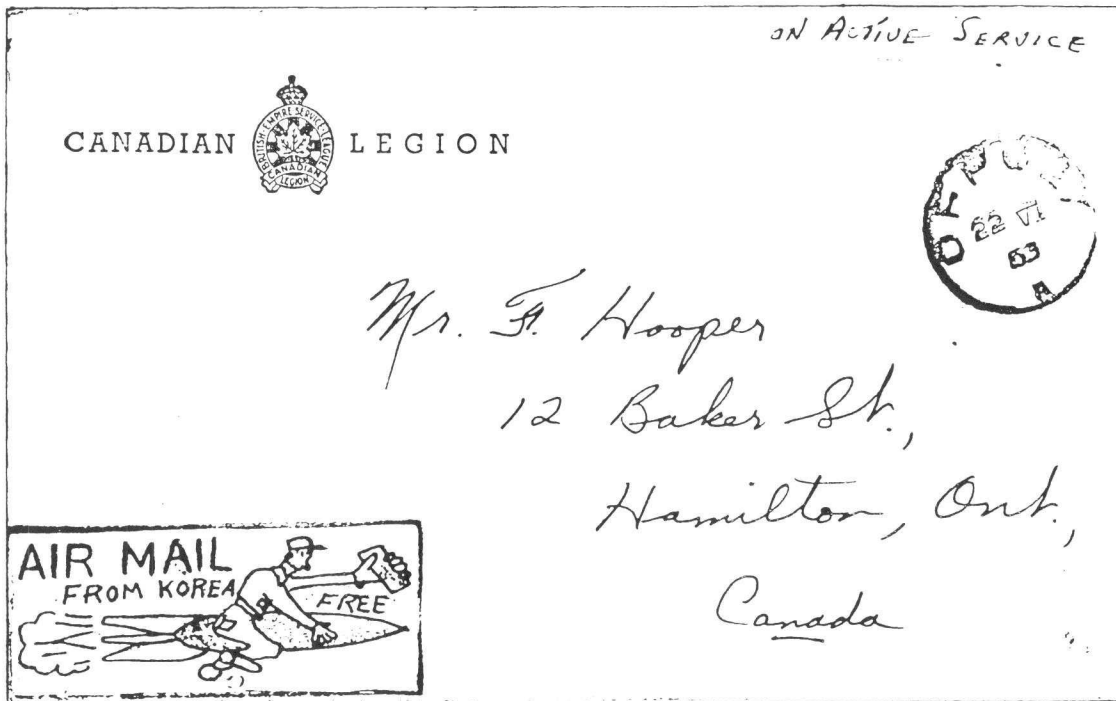 ON ACTIVE SERVICE
CANADIAN LEGION
BRITISH EMPIRE SERVICE LEAGUE
CANADIAN
LEGION
22 VI
53
A
Mr. F. Hooper
12 Baker St.,
Hamilton, Ont.,
Canada
AIR MAIL
FROM KOREA
FREE